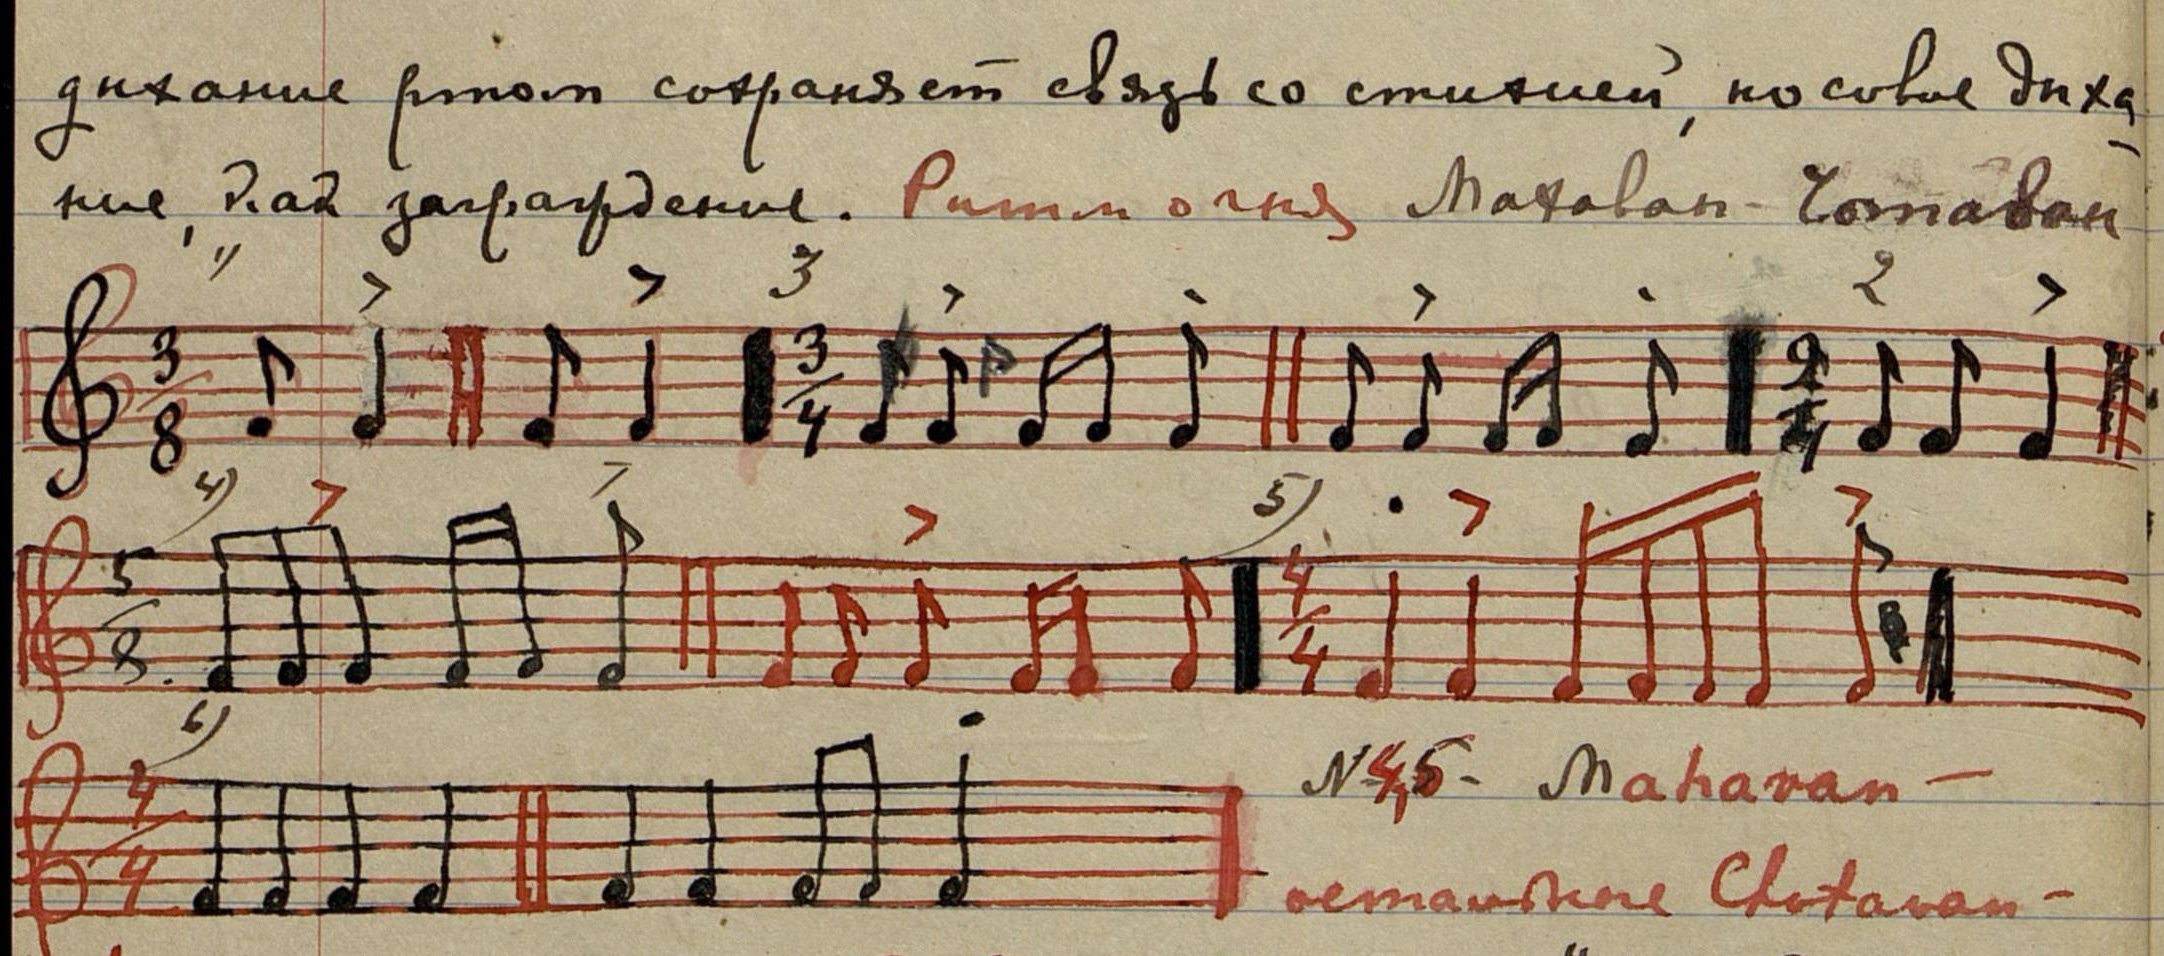 дыхание ртом сохраняет связь со стихией, носовое дыха-
ние, как заграждение. Ритм огня Махаван - Чотаван
1) 3 2
3/8 3/4 2/4
4) 5)
5/8 4/4
6)
4/4
№ 4,5 - Mahavan -
остальные Chotavan -